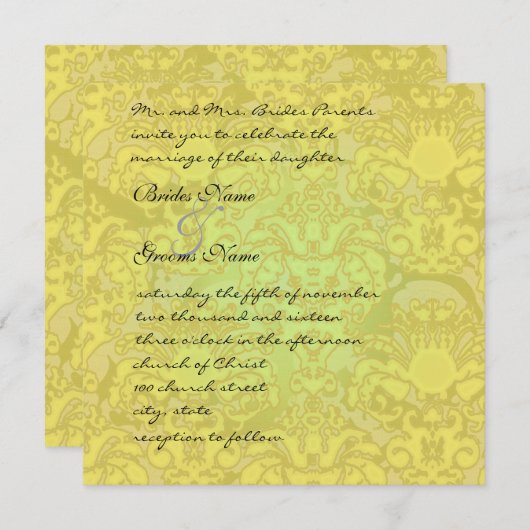 Mr. and Mrs. Brides Parents
invite you to celebrate the
marriage of their daughter
Brides Name
&
Grooms Name
saturday the fifth of november
two thousand and sixteen
three o'clock in the afternoon
church of Christ
100 church street
city, state
reception to follow